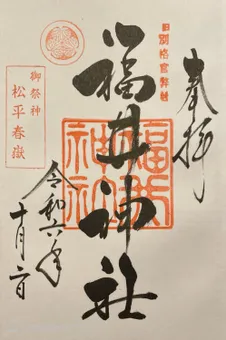 奉拝
旧別格官幣社
福井神社
福井
神社
御祭神
松平春嶽
令和六年
十月二日